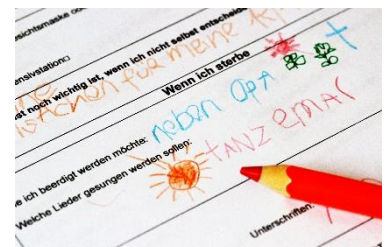 esichtsmaske od
ensivstation:
ist noch wichtig ist, wenn ich nicht selbst entscheide
für meine
Wenn ich sterbe
e ich beerdigt werden möchte: neben OPA
Welche Lieder gesungen werden sollen: TANZ EMAL
Unterschriften: